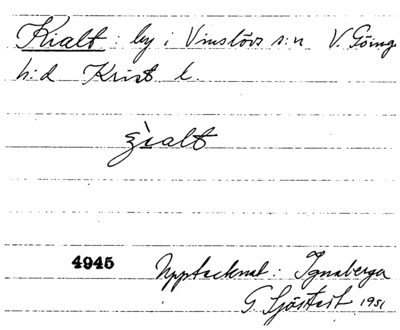 Kialt : by i Vinslövs s:n V. Göinge
h:d Krist l.
ʒìalt
4945 Upptecknat : Ignaberga
G. Sjöstedt 1931